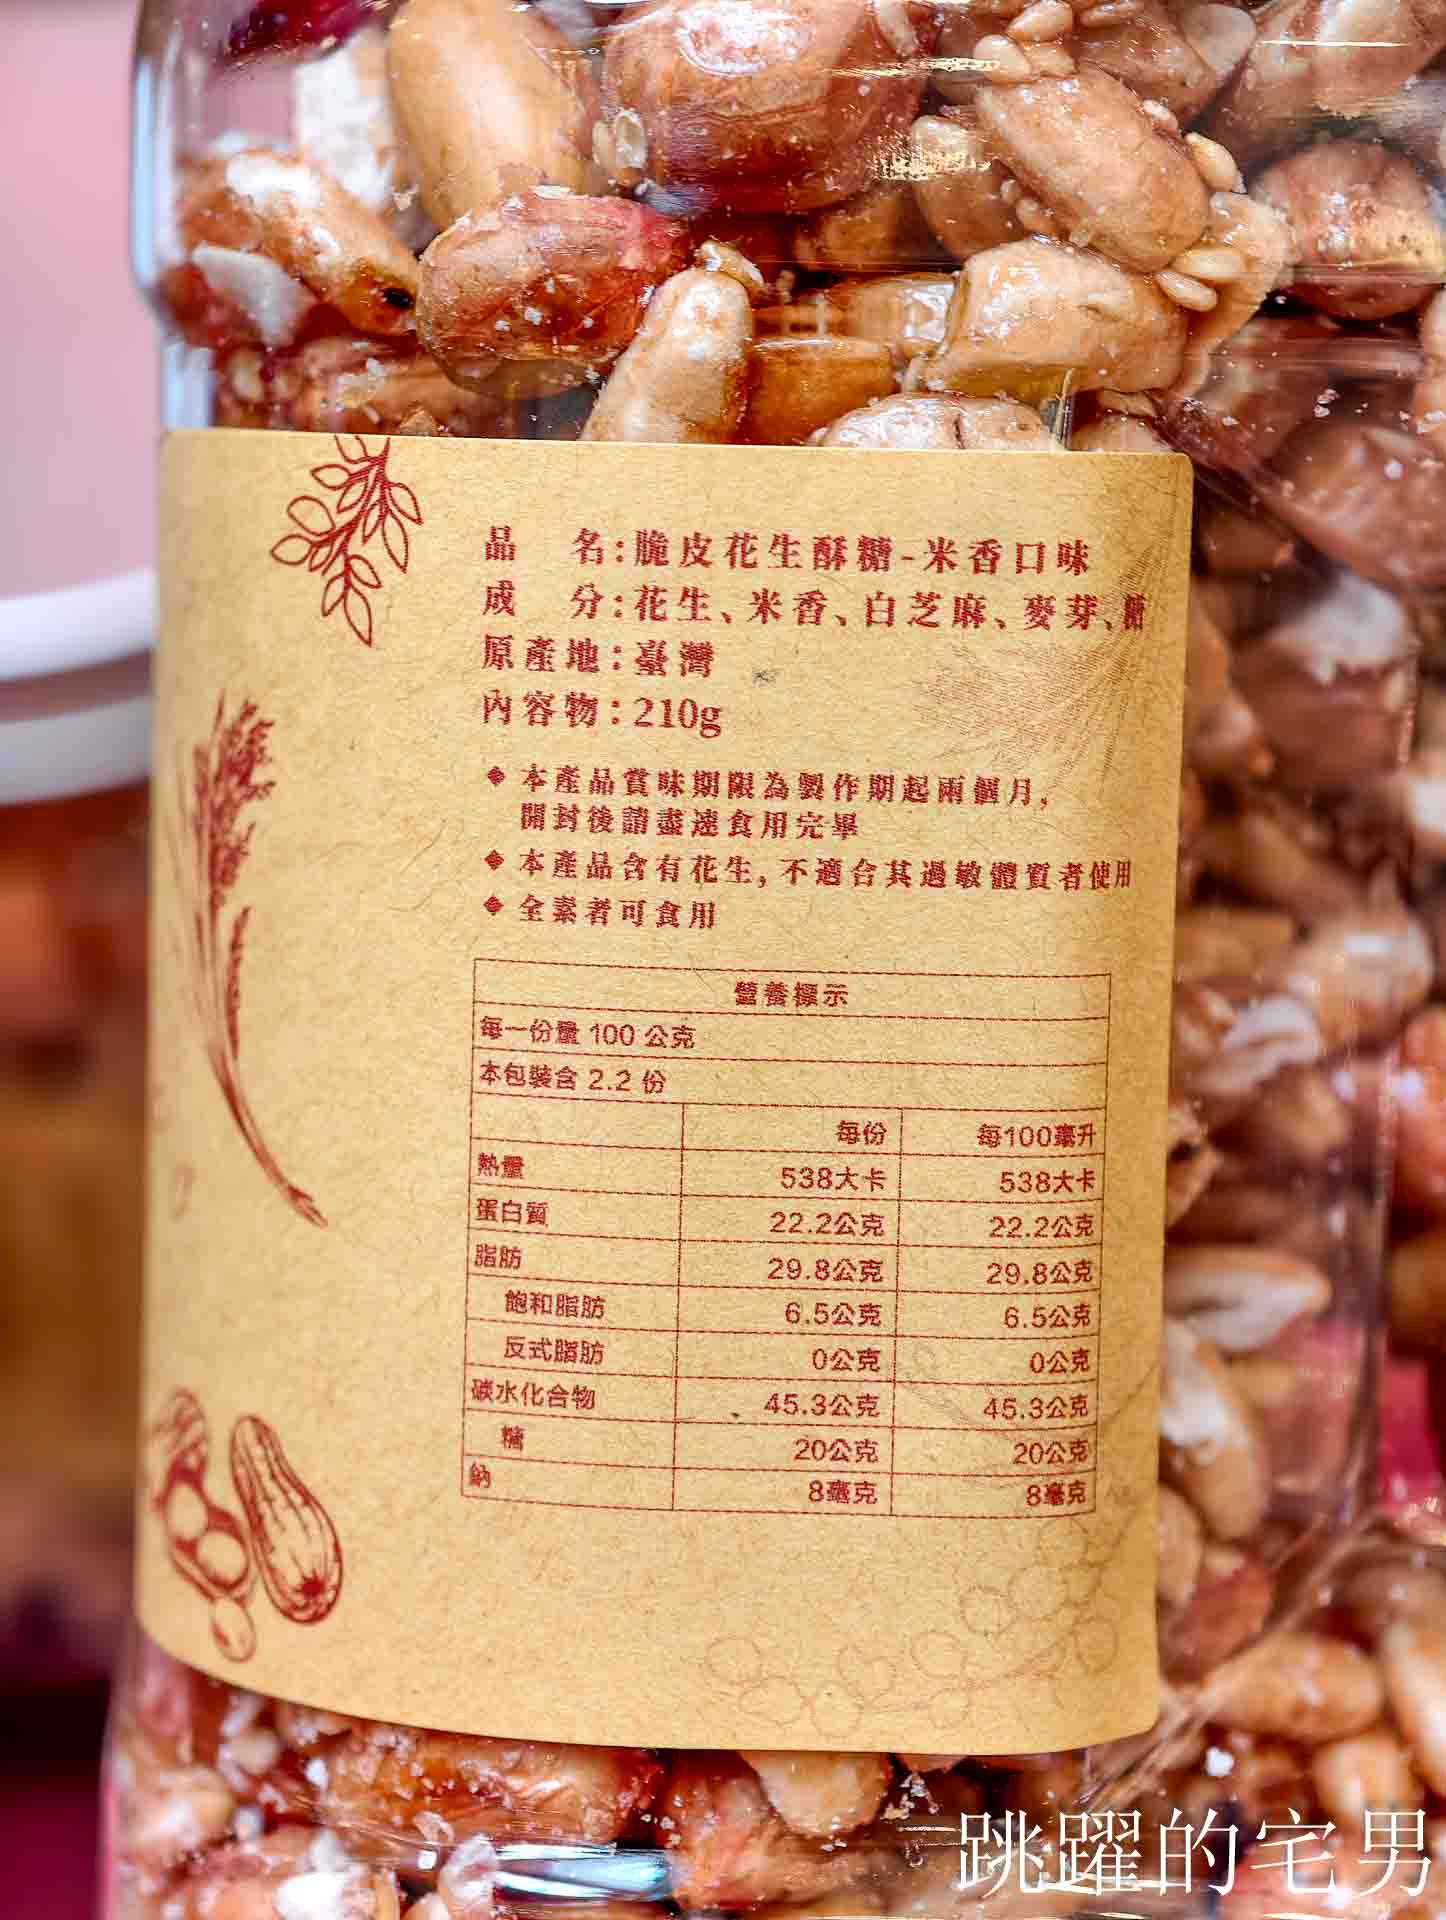 品　名：脆皮花生酥糖-米香口味
成　分：花生、米香、白芝麻、麥芽、糖
原產地：臺灣
內容物：210g
◆ 本產品賞味期限為製作期起兩個月，
開封後請盡速食用完畢
◆ 本產品含有花生，不適合其過敏體質者使用
◆ 全素者可食用
營養標示
每一份量 100 公克
本包裝含 2.2 份
每份 每100毫升
熱量 538大卡 538大卡
蛋白質 22.2公克 22.2公克
脂肪 29.8公克 29.8公克
飽和脂肪 6.5公克 6.5公克
反式脂肪 0公克 0公克
碳水化合物 45.3公克 45.3公克
糖 20公克 20公克
鈉 8毫克 8毫克
跳躍的宅男